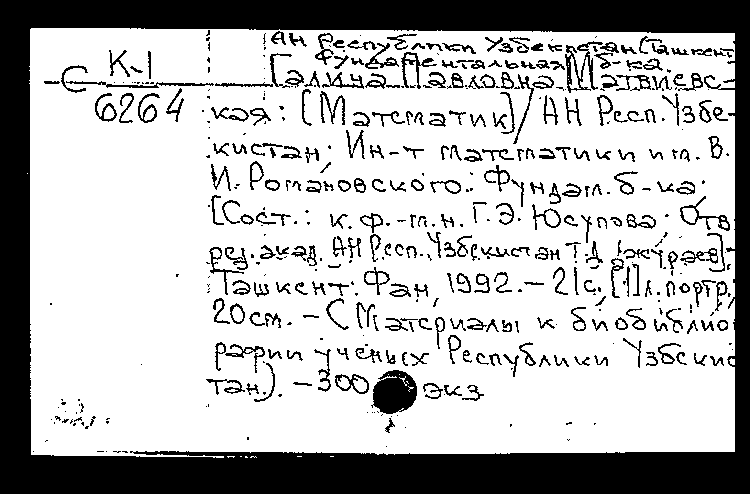 АН Республики Узбекистан (Ташкент)
Фундаментальная б-ка.
С К-1 6264
Галина Павловна Матвиевс-
кая: [Математик] / АН Респ. Узбе-
кистан; Ин-т математики им. В.
И. Романовского.; Фундам. б-ка;
[Сост.: к.ф.-м.н. Г.Э. Юсупова; Отв
ред. акад. АН Респ. Узбекистан Т.Д. Джураев].-
Ташкент: Фан, 1992. – 21с., [1]л. портр;
20см. – (Материалы к биобиблио
рафии ученых Республики Узбекис
тан.). – 300 экз